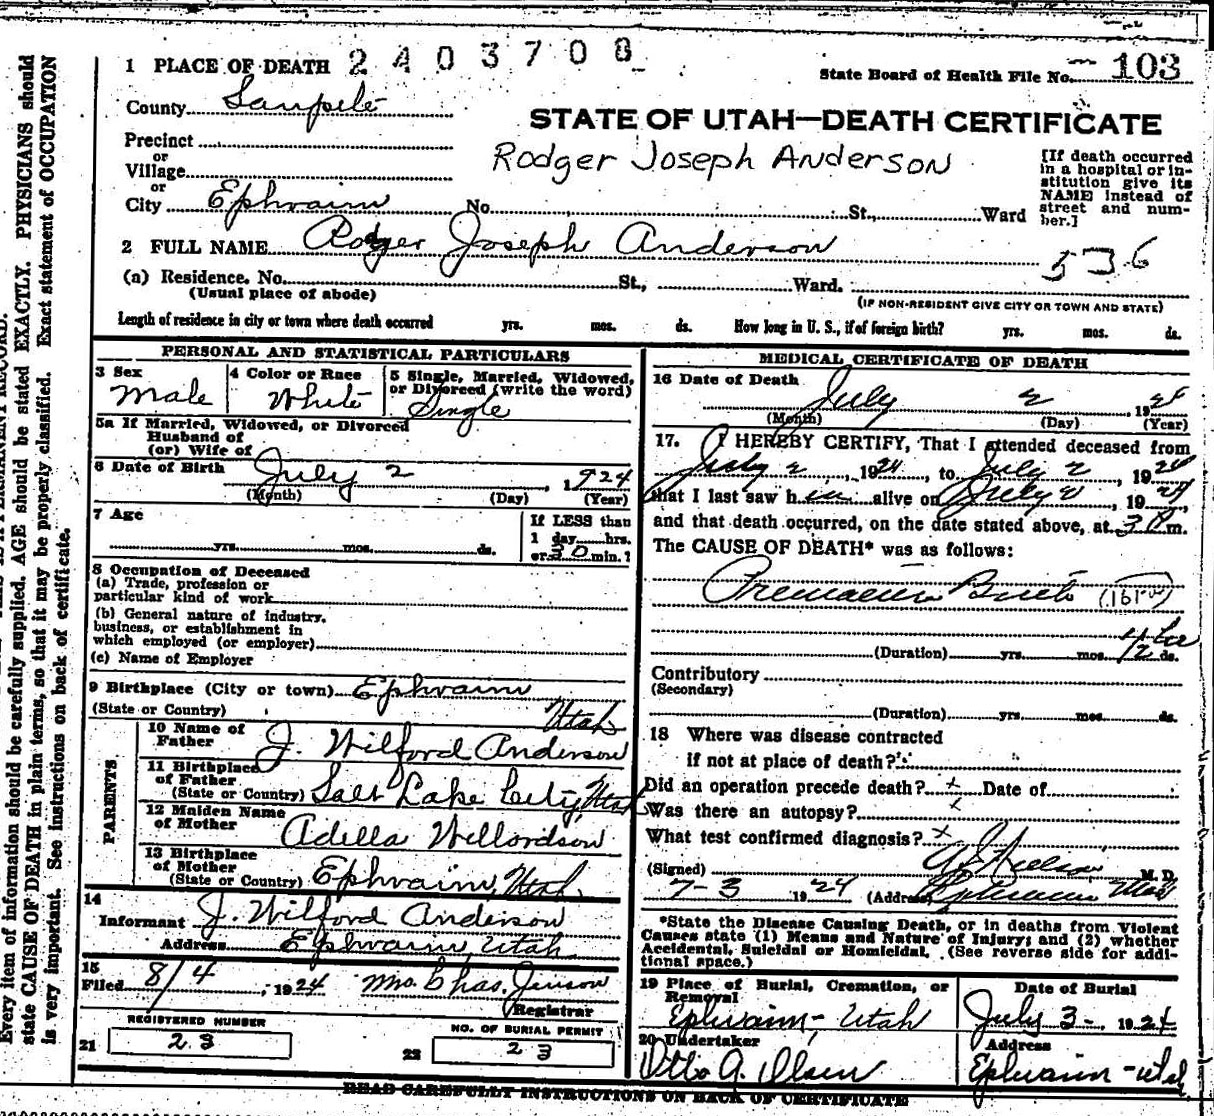 1 PLACE OF DEATH 2403708
State Board of Health File No. 103
County Sanpete
STATE OF UTAH—DEATH CERTIFICATE
Precinct
or
Village
or
City Ephraim No. St., Ward
Rodger Joseph Anderson
[If death occurred
in a hospital or in-
stitution give its
NAME instead of
street and num-
ber.]
2 FULL NAME Rodger Joseph Anderson
536
(a) Residence. No. St., Ward.
(Usual place of abode)
(IF NON-RESIDENT GIVE CITY OR TOWN AND STATE)
Length of residence in city or town where death occurred yrs. mos. ds. How long in U. S., if of foreign birth? yrs. mos. ds.
PERSONAL AND STATISTICAL PARTICULARS
3 Sex
Male
4 Color or Race
White
5 Single, Married, Widowed,
or Divorced (write the word)
Single
5a If Married, Widowed, or Divorced
Husband of
(or) Wife of
6 Date of Birth July 2, 1924
(Month) (Day) (Year)
7 Age
yrs. mos. ds.
If LESS than
1 day hrs.
or 30 min.?
8 Occupation of Deceased
(a) Trade, profession or
particular kind of work
(b) General nature of industry,
business, or establishment in
which employed (or employer)
(c) Name of Employer
9 Birthplace (City or town) Ephraim
(State or Country) Utah
PARENTS
10 Name of
Father J. Wilford Anderson
11 Birthplace
of Father
(State or Country) Salt Lake City, Utah
12 Maiden Name
of Mother Adella Willardson
13 Birthplace
of Mother
(State or Country) Ephraim, Utah
14
Informant J. Wilford Anderson
Address Ephraim, Utah
15
Filed 8/4, 1924 Mrs. Chas. Jenson
Registrar
REGISTERED NUMBER
21 23
NO. OF BURIAL PERMIT
22 23
MEDICAL CERTIFICATE OF DEATH
16 Date of Death July 2, 1924
(Month) (Day) (Year)
17. I HEREBY CERTIFY, That I attended deceased from
July 2, 1924, to July 2, 1924
that I last saw him alive on July 2, 1924,
and that death occurred, on the date stated above, at 3 P m.
The CAUSE OF DEATH* was as follows:
Premature Birth
(Duration) yrs. mos. 1/2 ds.
Contributory
(Secondary)
(Duration) yrs. mos. ds.
18 Where was disease contracted
if not at place of death?
Did an operation precede death? x Date of
Was there an autopsy? x
What test confirmed diagnosis? x
(Signed) Nielson M. D.
7-3 1924 (Address) Ephraim Utah
*State the Disease Causing Death, or in deaths from Violent
Causes state (1) Means and Nature of Injury; and (2) whether
Accidental, Suicidal or Homicidal. (See reverse side for addi-
tional space.)
19 Place of Burial, Cremation, or
Removal
Ephraim, Utah
Date of Burial
July 3, 1924
20 Undertaker
Otto A. Olsen
Address
Ephraim - Utah
READ CAREFULLY INSTRUCTIONS ON BACK OF CERTIFICATE
Every item of information should be carefully supplied. AGE should be stated EXACTLY. PHYSICIANS should
state CAUSE OF DEATH in plain terms, so that it may be properly classified. Exact statement of OCCUPATION
is very important. See instructions on back of certificate.